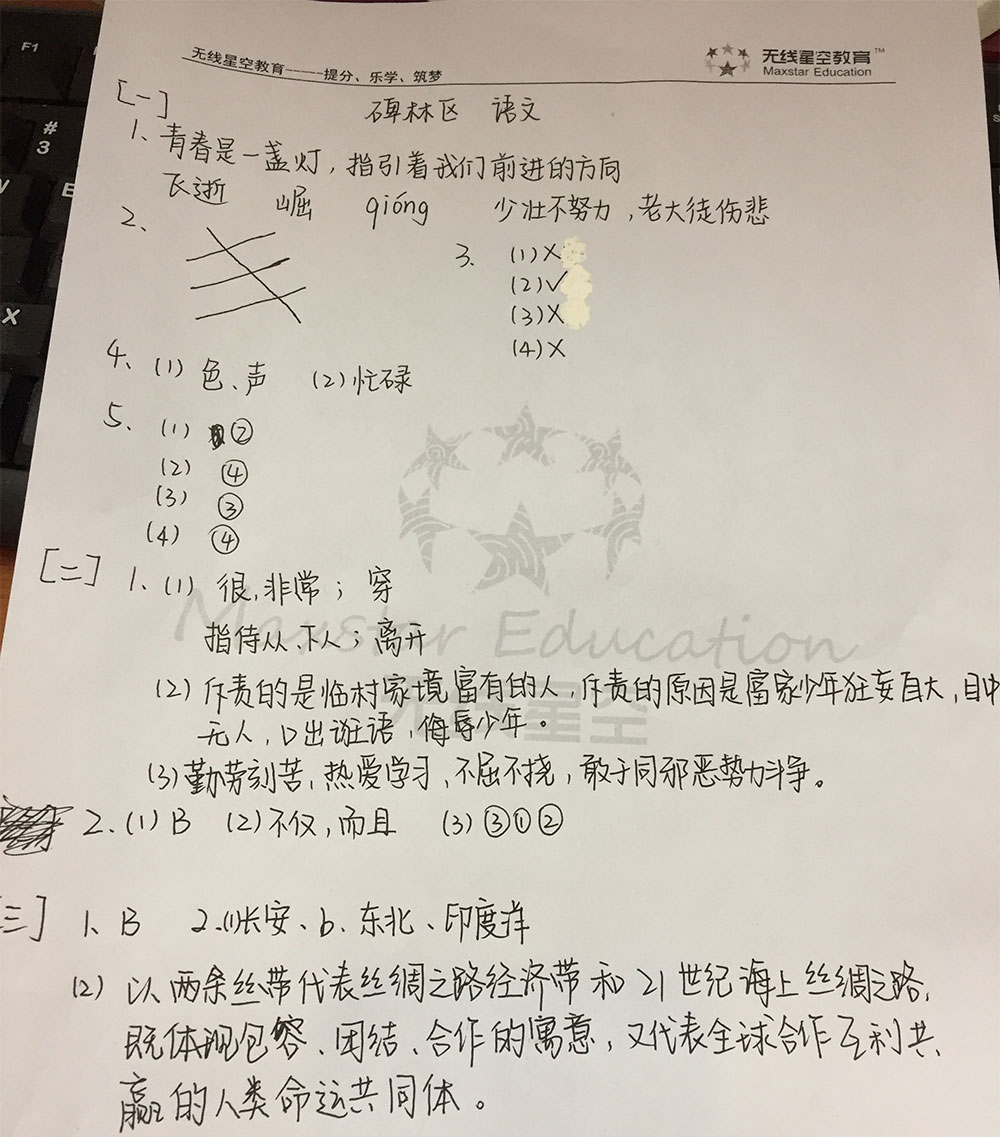 无线星空教育-----提分、乐学、筑梦
无线星空教育™
Maxstar Education
[一]
碑林区 语文
1、青春是一盏灯，指引着我们前进的方向
飞逝 崛 qióng 少壮不努力，老大徒伤悲
2、
3. (1)×
(2)√
(3)×
(4)×
4、(1)色、声 (2)忙碌
5、(1) ②
(2) ④
(3) ③
(4) ④
[二] 1、(1) 很，非常；穿
指侍从、下人；离开
(2) 斥责的是临村家境富有的人，斥责的原因是富家少年狂妄自大，目中
无人，口出诳语，侮辱少年。
(3)勤劳刻苦，热爱学习，不屈不挠，敢于同邪恶势力斗争。
2.(1)B (2)不仅，而且 (3)③①②
[三] 1、B 2.(1)长安、b、东北、印度洋
(2) 以两条丝带代表丝绸之路经济带和21世纪海上丝绸之路，
既体现包容、团结、合作的寓意，又代表全球合作互利共
赢的人类命运共同体。
Maxstar Education
无线星空
F1
#
3
E
X